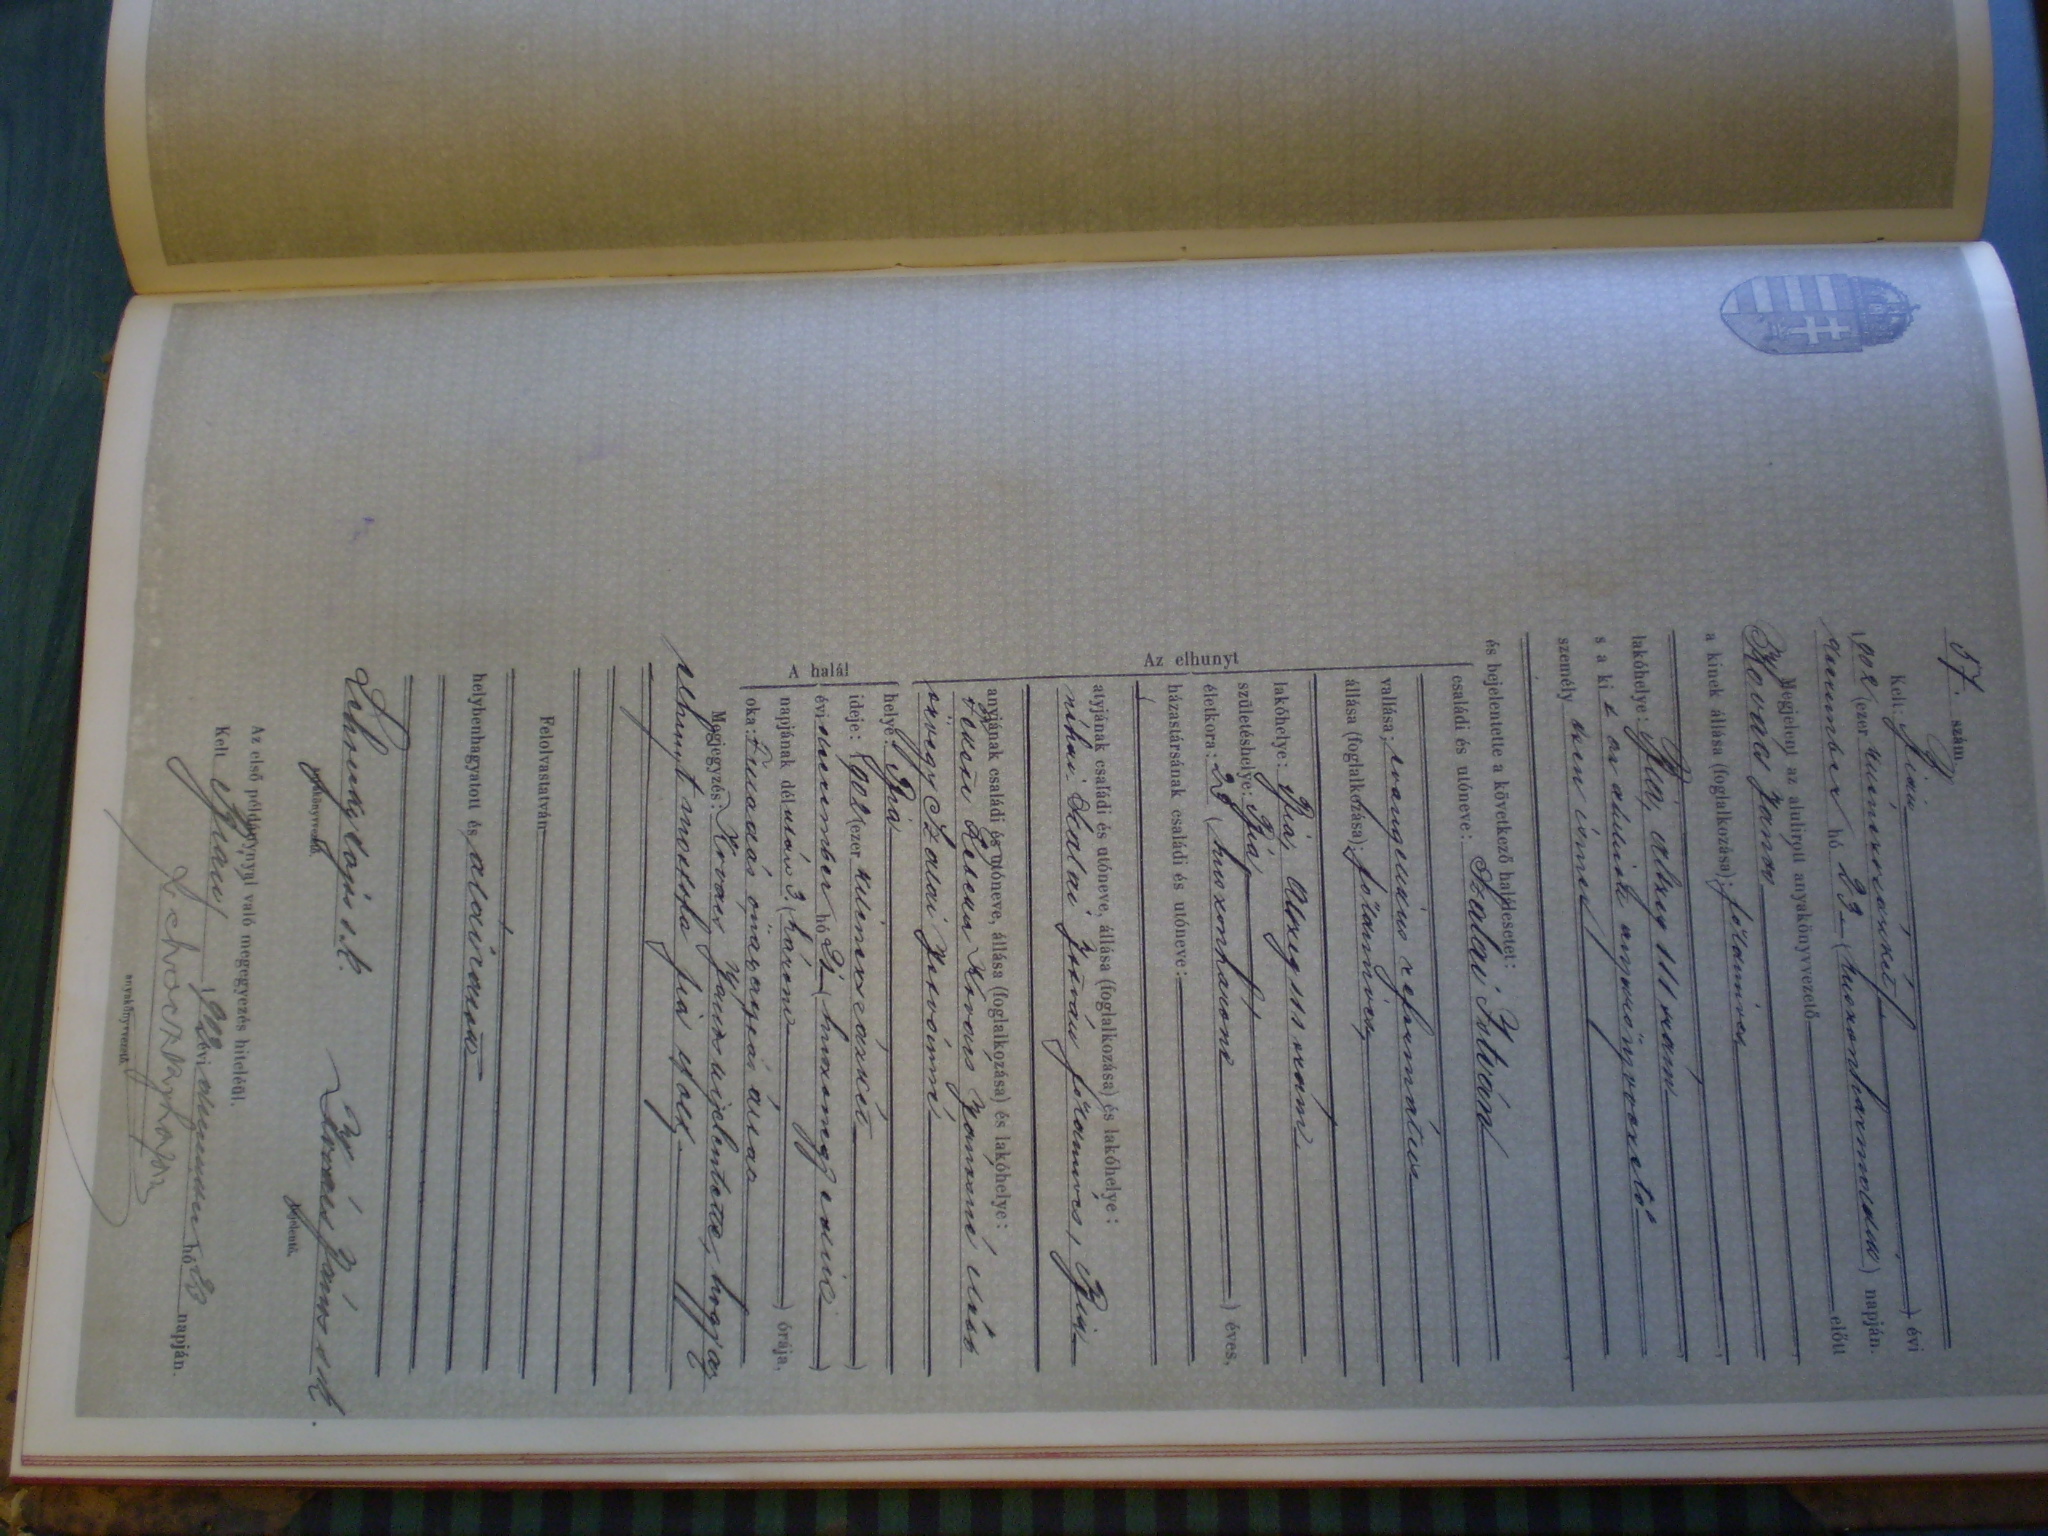 57. szám.
Kelt: Bián, 1902 (ezer kilenczszázkét) évi
deczember hó 23 (huszonharmadik) napján.
Megjelent az alulirott anyakönyvvezető előtt
Kovács János
a kinek állása (foglalkozása): földmíves
lakóhelye: Bia, alszeg 111 szám
s a ki az alulirt anyakönyvvezető
személyesen ismer
és bejelentette a következő halálesetet:
Az elhunyt
családi és utóneve: Szalai István
vallása: evangelicus református
állása (foglalkozása): földmíves
lakóhelye: Bia, alszeg 111 szám.
születéshelye: Bia,
életkora: 23 (huszonhárom) éves,
házastársának családi és utóneve:
atyjának családi és utóneve, állása (foglalkozása) és lakóhelye:
néhai Szalai István földmíves, Bia
anyjának családi és utóneve, állása (foglalkozása) és lakóhelye:
Kovács Jánosné előbb
özvegy Szalai Istvánné
A halál
helye: Bia
ideje: 1902 (ezer kilenczszázkét
évi deczember hó (huszonegyedik)
napjának délután 3 (három) órája,
oka:
Megjegyzés: Kovács János kijelentette, hogy az
elhunyt mostoha fia volt.
Felolvastatván,
helybenhagyatott és aláiratott
Kovács János s.k.
anyakönyvvezető.
bejelentő.
Az első példánynyal való megegyezés hiteléül.
Kelt Bián, 1902 évi deczember hó napján.
anyakönyvvezető.